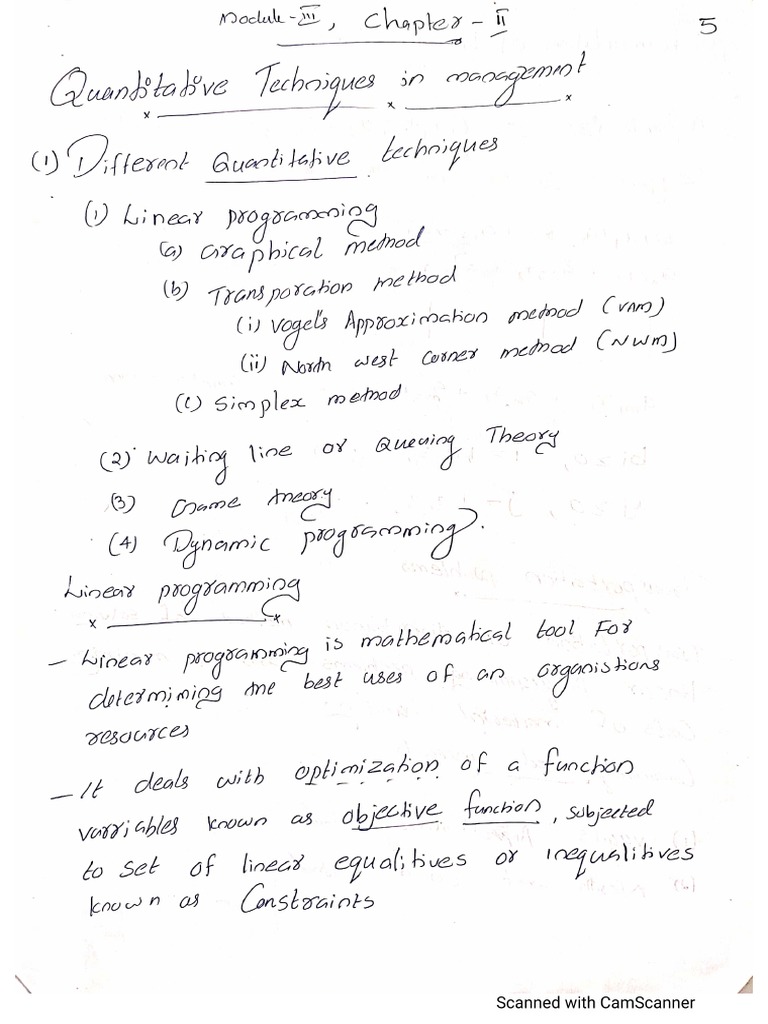 Module-III, Chapter-II
5
Quantitative Techniques in management
(1) Different Quantitative techniques
(1) Linear programming
(a) Graphical method
(b) Transporation method
(i) Vogel's Approximation method (VAM)
(ii) North west Corner method (NWM)
(c) Simplex method
(2) Waiting line or Queuing Theory
(3) Game theory
(4) Dynamic programming.
Linear programming
- Linear programming is mathematical tool For
determining the best uses of an organistions
resources
- It deals with optimization of a function
varriables known as objective function, subjected
to set of linear equalitives or inequalitives
known as Constraints
Scanned with CamScanner